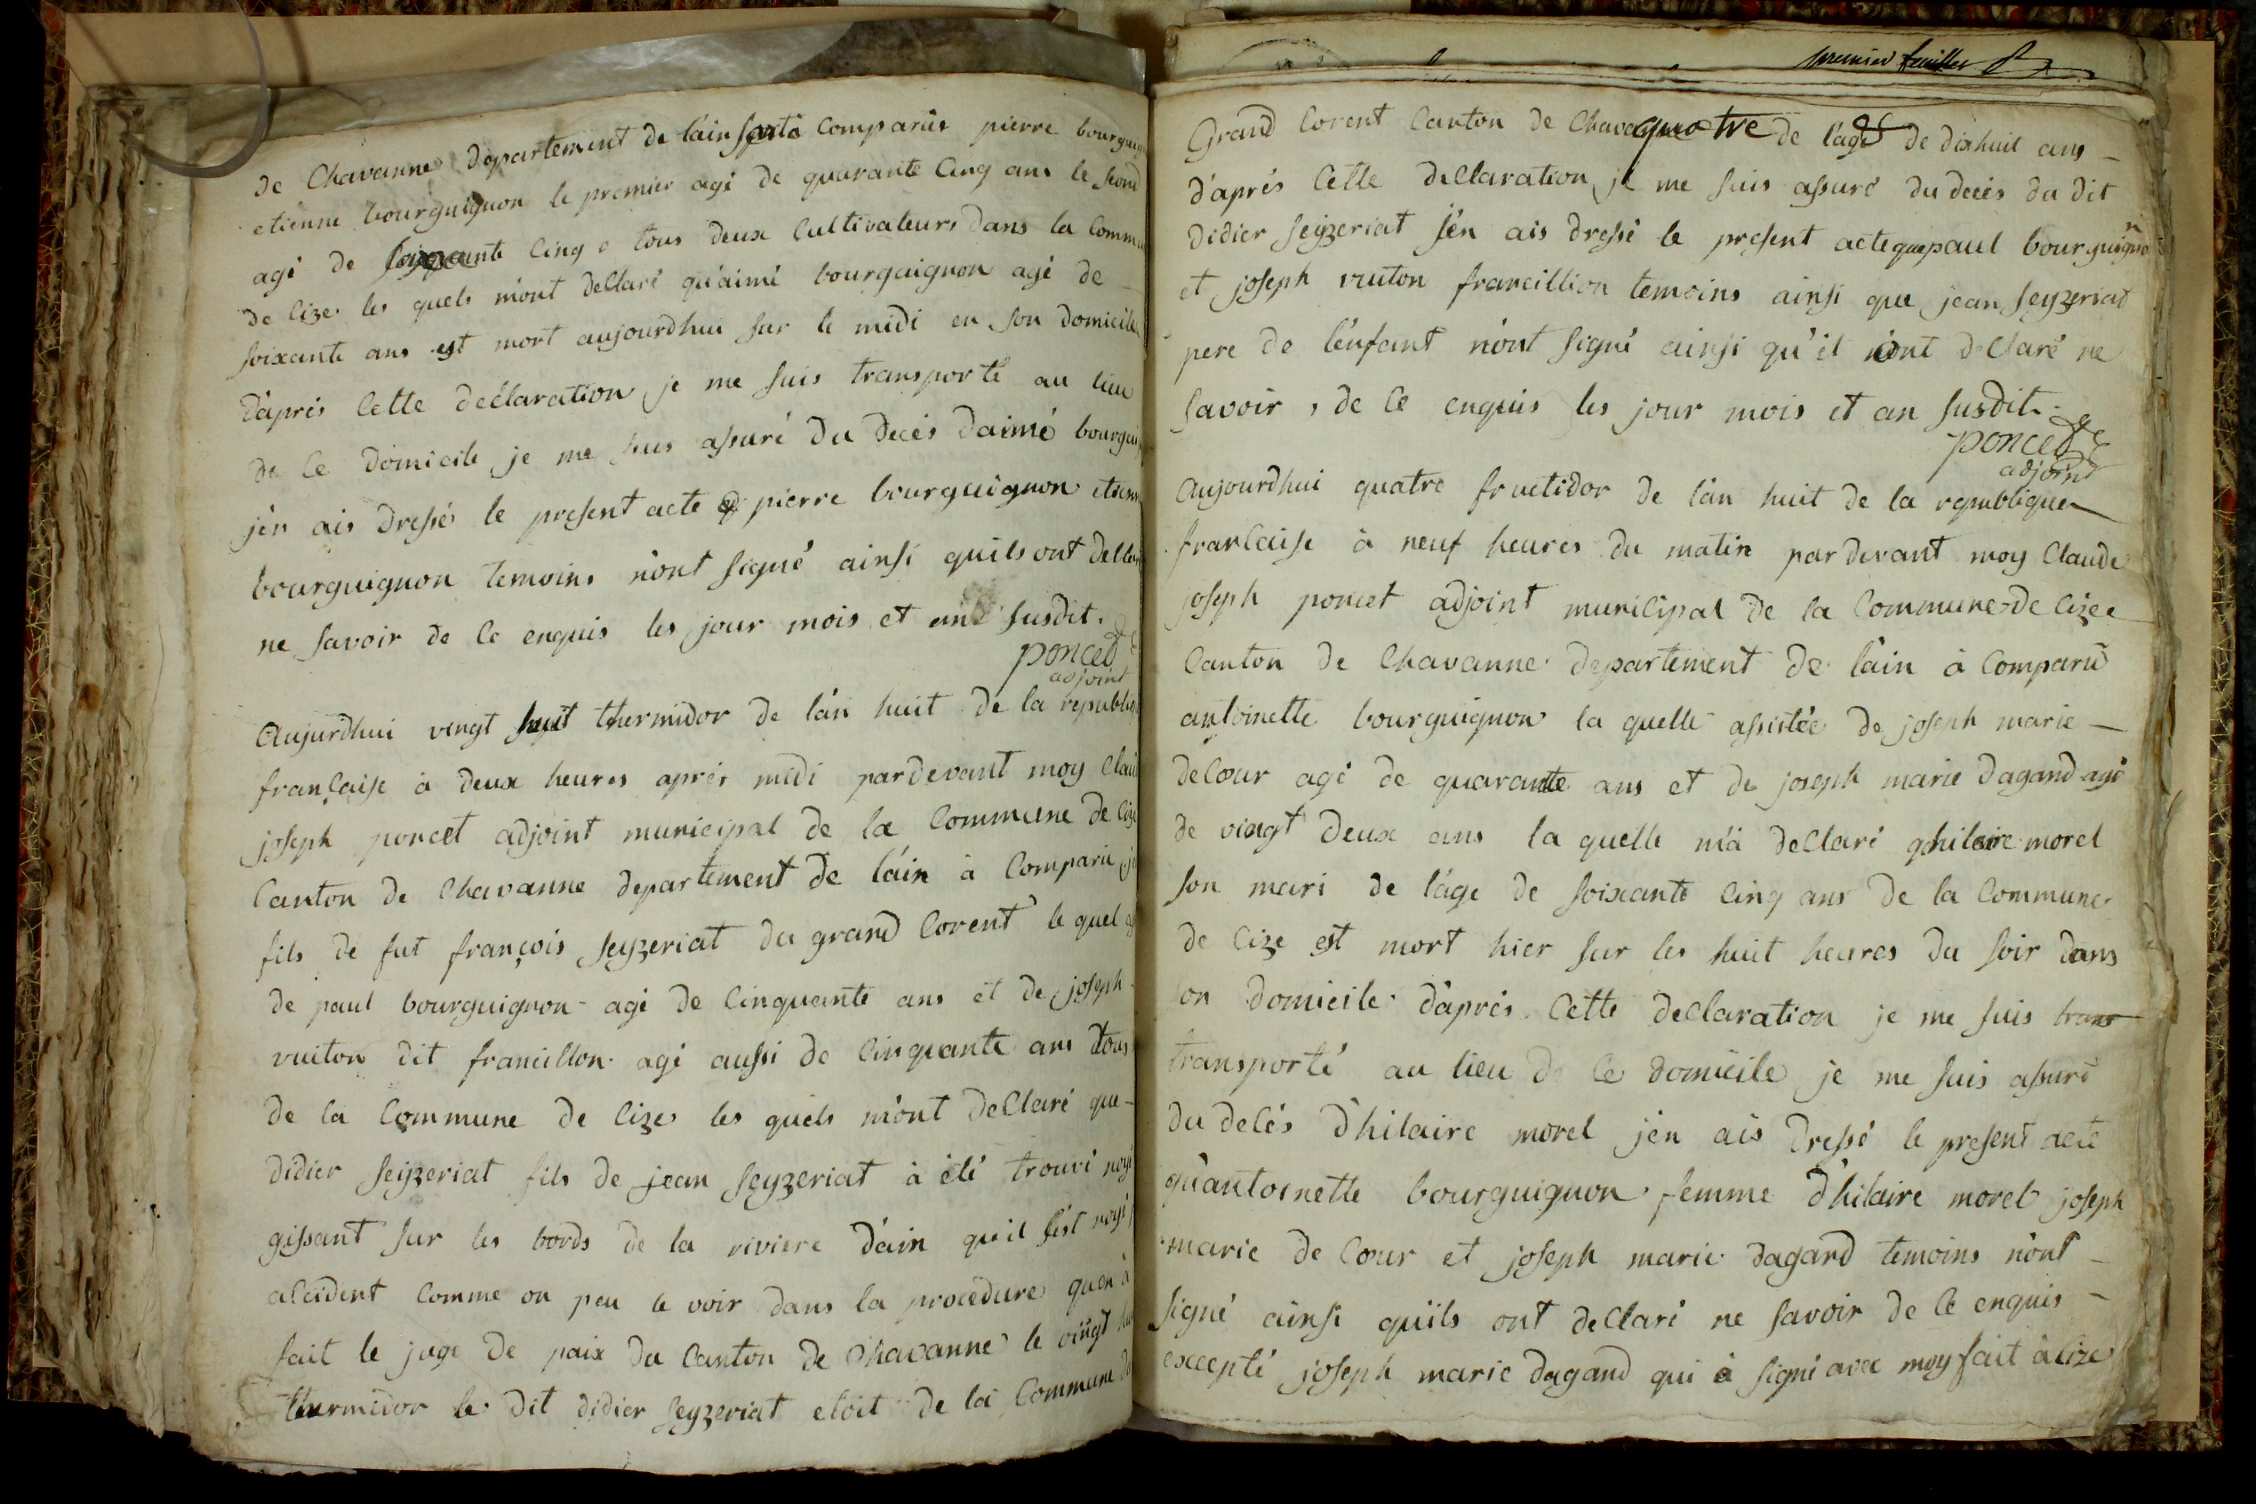 de Chavanne departement de láin sont comparûs pierre bourguign
etienne bourguignon le premier agé de quarante cinq ans le second
agé de soixante cinq e tous deux cultivateurs dans la commu
de cize les quels m'ont declaré qu'aimé bourguignon agé de
soixante ans est mort aujourdhui sur le midi en son domicile
d'aprés cette declaration je me suis transporté au lieu
de ce domicile je me suis assuré du decès daimé bourgui
j'en ais dressé le present acte q pierre bourguignon etienn
bourguignon temoins n'ont signé ainsi quils ont decla
ne savoir de ce enquis les jour mois et an susdit.
poncet
adjoint
Aujurdhui vingt huit thermidor de l'an huit de la republiq
française à deux heures aprés midi pardevant moy Clau
joseph poncet adjoint municipal de la commune de cize
canton de Chavanne departement de láin à comparu j
fils de fut françois seyzeriat du grand corent le quel
de paul bourguignon agé de cinquante ans et de joseph
vuiton dit francillon agé aussi de cinquante ans tous
de la commune de cize les quels m'ont declaré que
didier seyzeriat fils de jean seyzeriat à été trouvé noyé
gissant sur les bords de la riviere d'ain qu'il s'est noyé
accident comme on peu le voir dans la procedure quen à
fait le juge de paix du canton de Chavanne le vingt
thermidor le dit didier seyzeriat etoit de la commune d
premier feuillet
Grand Corent canton de Chava quatre de l'age de dixhuit ans
d'aprés cette declaration je me suis assuré du decès du dit
didier seyzeriat j'en ais dressé le present acte que paul bourguignon
et joseph vuiton francillion temoins ainsi que jean seyzeriat
pere de l'enfant n'ont signé ainsi qu'il m'ont declaré ne
savoir, de ce enquis les jour mois et an susdit.
poncet
adjoint
Aujourdhui quatre fructidor de l'an huit de la republique
francaise à neuf heures du matin pardevant moy Claude
joseph poncet adjoint municipal de la commune de cize
canton de Chavanne departement de l'ain à comparu
antoinette bourguignon la quelle assistée de joseph marie
decour agé de quarante ans et de joseph marie dagand agé
de vingt deux ans la quelle m'à declaré qhilaire morel
son mari de l'àge de soixante cinq ans de la commune
de cize est mort hier sur les huit heures du soir dans
son domicile d'aprés cette declaration je me suis trans
transporté au lieu de ce domicile je me suis assuré
du decés d'hilaire morel j'en ais dressé le present acte
qu'antoinette bourguignon femme d'hilaire morel joseph
marie de cour et joseph marie dagand temoins n'ont
signé ainsi quïls ont declaré ne savoir de ce enquis
excepté joseph marie dagand qui à signé avec moy fait à cize